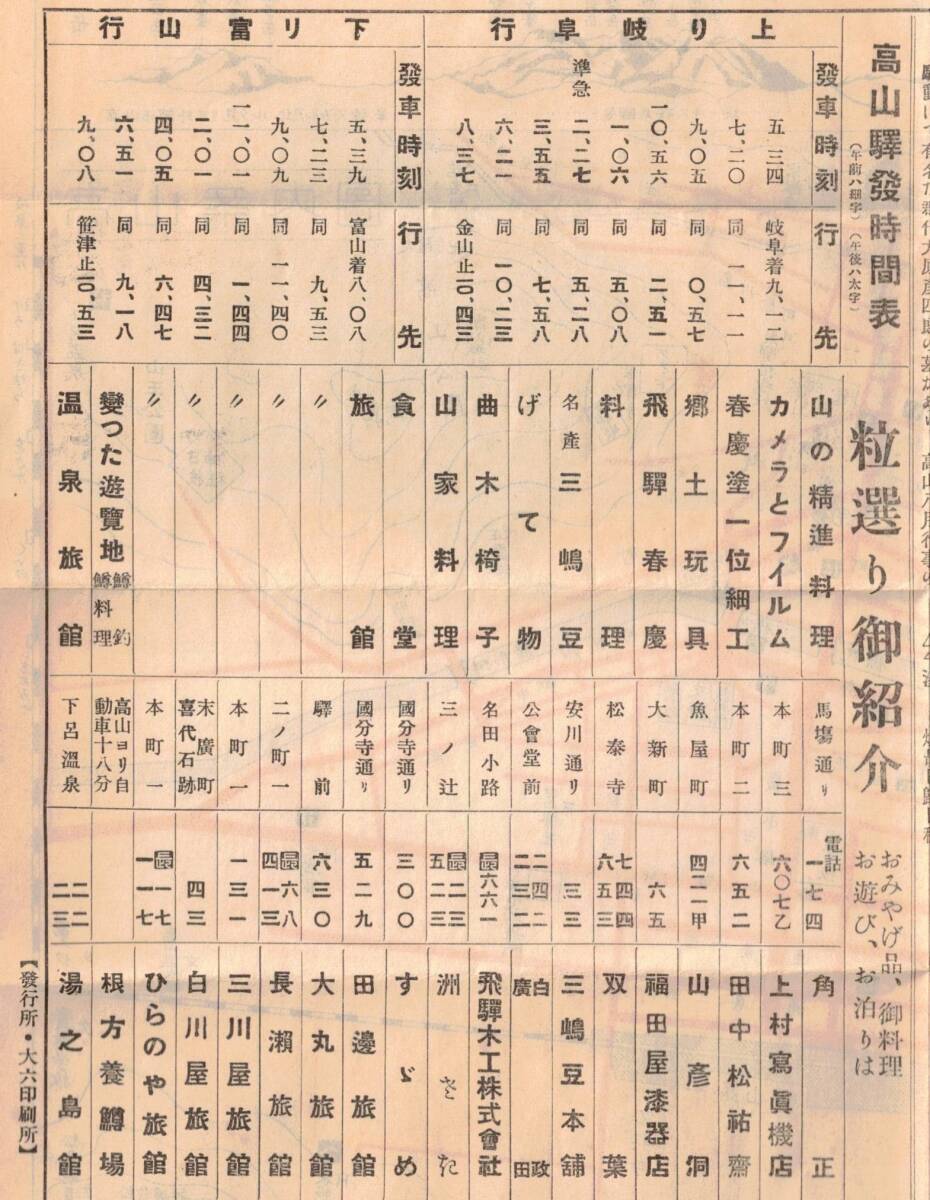 高山驛發時間表
（午前ハ細字）（午後ハ太字）
上り岐阜行
發車時刻　行先
五、三四　岐阜着九、一二
七、二〇　同　一一、一一
九、〇五　同　〇、五七
一〇、五六　同　二、五一
一、〇六　同　五、〇八
準急　二、二七　同　五、二八
三、五五　同　七、五八
六、二一　同　一〇、二三
八、三七　金山止一〇、四三
下リ富山行
發車時刻　行先
五、三九　富山着八、〇八
七、二三　同　九、五三
九、〇九　同　一一、四〇
一一、〇一　同　一、四四
二、〇一　同　四、三二
四、〇五　同　六、四七
六、五一　同　九、一八
九、〇八　笹津止一〇、五三
粒選り御紹介
おみやげ品、御料理
お遊び、お泊りは
山の精進料理　馬場通り　電話一七四　角正
カメラとフイルム　本町三　六〇七乙　上村寫眞機店
春慶塗一位細工　本町二　六五二　田中松祐齋
郷土玩具　魚屋町　四二一甲　山彥洞
飛驒春慶　大新町　六五　福田屋漆器店
料理　松泰寺　七四四　六五三　双葉
名產三嶋豆　安川通り　三三　三嶋豆本舖
げて物　公會堂前　二四二　二三二　白政　廣田
曲木椅子　名田小路　長六六一　飛驒木工株式會社
山家料理　三ノ辻　長二三　五二三　洲さき
食堂　國分寺通り　三〇〇　すゞめ
旅館　國分寺通り　五二九　田邊旅館
〃　驛前　六三〇　大丸旅館
〃　二ノ町一　長六八　四一三　長瀨旅館
〃　本町一　一三一　三川屋旅館
〃　末廣町　喜代石跡　四三　白川屋旅館
〃　本町一　長一七　一一七　ひらのや旅館
變つた遊覽地　鱒釣　鱒料理　高山ヨリ自動車十八分　根方養鱒場
溫泉旅館　下呂溫泉　二二　二三　湯之島館
【發行所・大六印刷所】